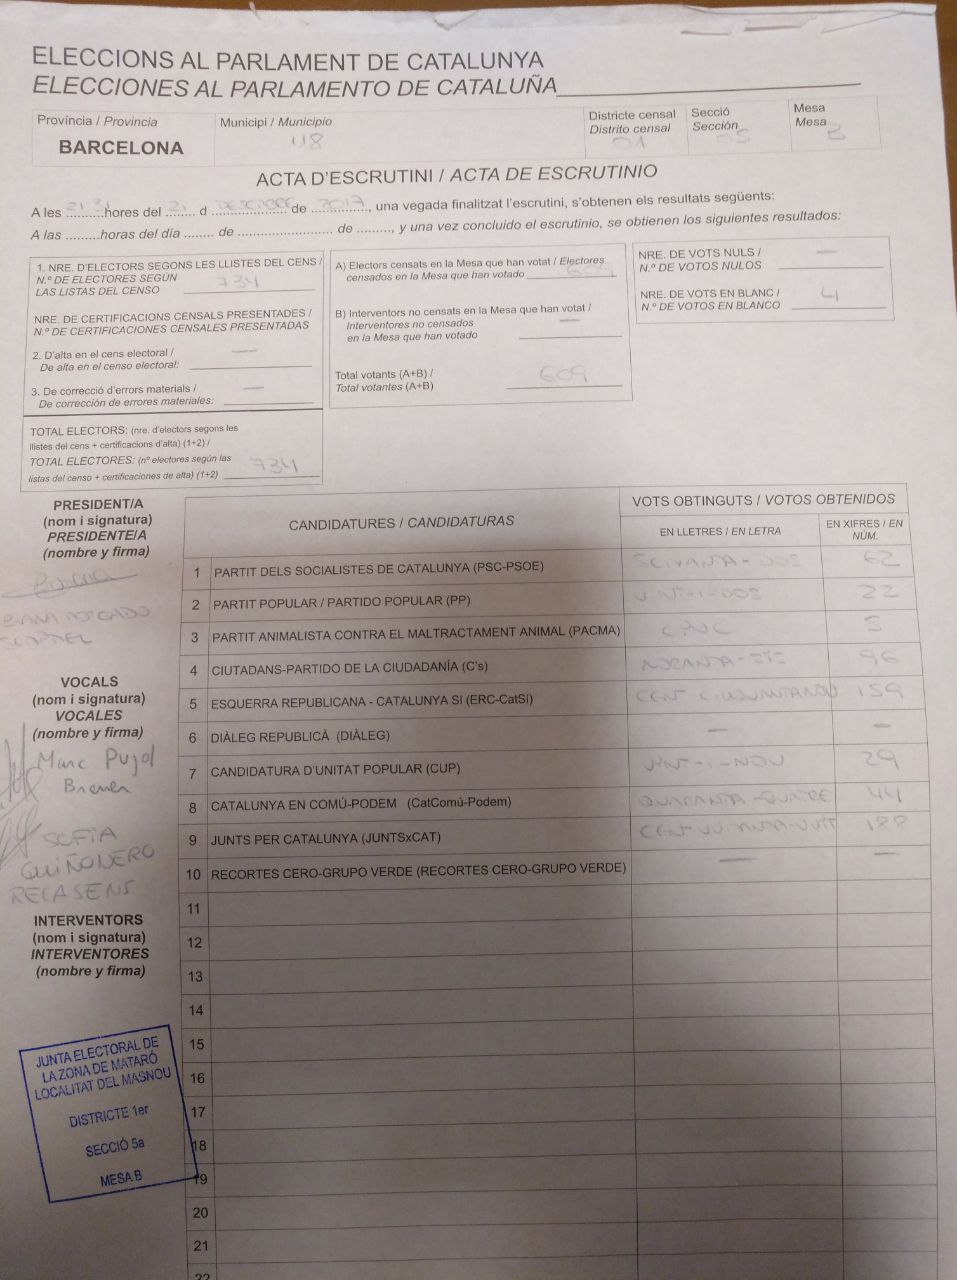 ELECCIONS AL PARLAMENT DE CATALUNYA
ELECCIONES AL PARLAMENTO DE CATALUÑA
Província / Provincia
BARCELONA
Municipi / Municipio
118
Districte censal
Distrito censal
01
Secció
Sección
05
Mesa
Mesa
B
ACTA D'ESCRUTINI / ACTA DE ESCRUTINIO
A les 21:31 hores del 21 d DESEMBRE de 2017, una vegada finalitzat l'escrutini, s'obtenen els resultats següents:
A las .........horas del día ........ de .......................... de .........., y una vez concluido el escrutinio, se obtienen los siguientes resultados:
1. NRE. D'ELECTORS SEGONS LES LLISTES DEL CENS /
N.º DE ELECTORES SEGÚN
LAS LISTAS DEL CENSO 734
NRE. DE CERTIFICACIONS CENSALS PRESENTADES /
N.º DE CERTIFICACIONES CENSALES PRESENTADAS
2. D'alta en el cens electoral /
De alta en el censo electoral: —
3. De correcció d'errors materials /
De corrección de errores materiales: —
TOTAL ELECTORS: (nre. d'electors segons les
llistes del cens + certificacions d'alta) (1+2) /
TOTAL ELECTORES: (nº electores según las
listas del censo + certificaciones de alta) (1+2) 734
A) Electors censats en la Mesa que han votat / Electores
censados en la Mesa que han votado 609
B) Interventors no censats en la Mesa que han votat /
Interventores no censados
en la Mesa que han votado —
Total votants (A+B) /
Total votantes (A+B) 609
NRE. DE VOTS NULS /
N.º DE VOTOS NULOS —
NRE. DE VOTS EN BLANC /
N.º DE VOTOS EN BLANCO 4
PRESIDENT/A
(nom i signatura)
PRESIDENTE/A
(nombre y firma)
VOCALS
(nom i signatura)
VOCALES
(nombre y firma)
Marc Pujol
SOFIA
QUIÑONERO
RECASENS
INTERVENTORS
(nom i signatura)
INTERVENTORES
(nombre y firma)
JUNTA ELECTORAL DE
LA ZONA DE MATARÓ
LOCALITAT DEL MASNOU
DISTRICTE 1er
SECCIÓ 5a
MESA B
CANDIDATURES / CANDIDATURAS
VOTS OBTINGUTS / VOTOS OBTENIDOS
EN LLETRES / EN LETRA
EN XIFRES / EN
NÚM.
1 PARTIT DELS SOCIALISTES DE CATALUNYA (PSC-PSOE) SEIXANTA-DOS 62
2 PARTIT POPULAR / PARTIDO POPULAR (PP) VINT-I-DOS 22
3 PARTIT ANIMALISTA CONTRA EL MALTRACTAMENT ANIMAL (PACMA) CINC 5
4 CIUTADANS-PARTIDO DE LA CIUDADANÍA (C's) NORANTA-SIS 96
5 ESQUERRA REPUBLICANA - CATALUNYA SI (ERC-CatSí) CENT CINQUANTANOU 159
6 DIÀLEG REPUBLICÀ (DIÀLEG) — —
7 CANDIDATURA D'UNITAT POPULAR (CUP) VINT-I-NOU 29
8 CATALUNYA EN COMÚ-PODEM (CatComú-Podem) QUARANTA-QUATRE 44
9 JUNTS PER CATALUNYA (JUNTSxCAT) CENT VUITANTA-VUIT 188
10 RECORTES CERO-GRUPO VERDE (RECORTES CERO-GRUPO VERDE) — —
11
12
13
14
15
16
17
18
19
20
21
22